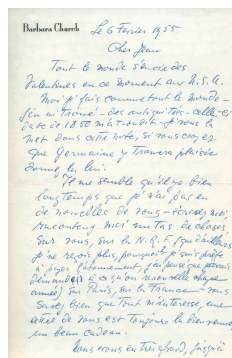 Barbara Church
Le 6 Fevrier 1955
Cher Jean
Tout le monde s'envoie des
Valentines en ce moment aux U.S.A.
Moi je fais comme tout le monde -
j'en ai trouvé - des antiquités - celle-ci
date de 1850 m'a-t-on dit - je vous la
mets dans cette lettre, si vous croyez
que Germaine y trouvera plaisir
donnez-la lui.
Il me semble qu'il y a bien
longtemps que je n'ai pas eu
de nouvelles de vous - écrivez moi,
racontez moi un tas de choses,
sur vous, sur la N.R.F. (que d'ailleurs
je ne reçois plus, pourtant je suis prête
à payer l'abonnement, j'ai
demandé à ce qu'on renouvelle chaque
année) sur Paris, sur la France - vous
savez bien que tout m'intéresse, une
lettre de vous est toujours la bienvenue,
un beau cadeau.
Nous avons eu très froid, jusqu'à